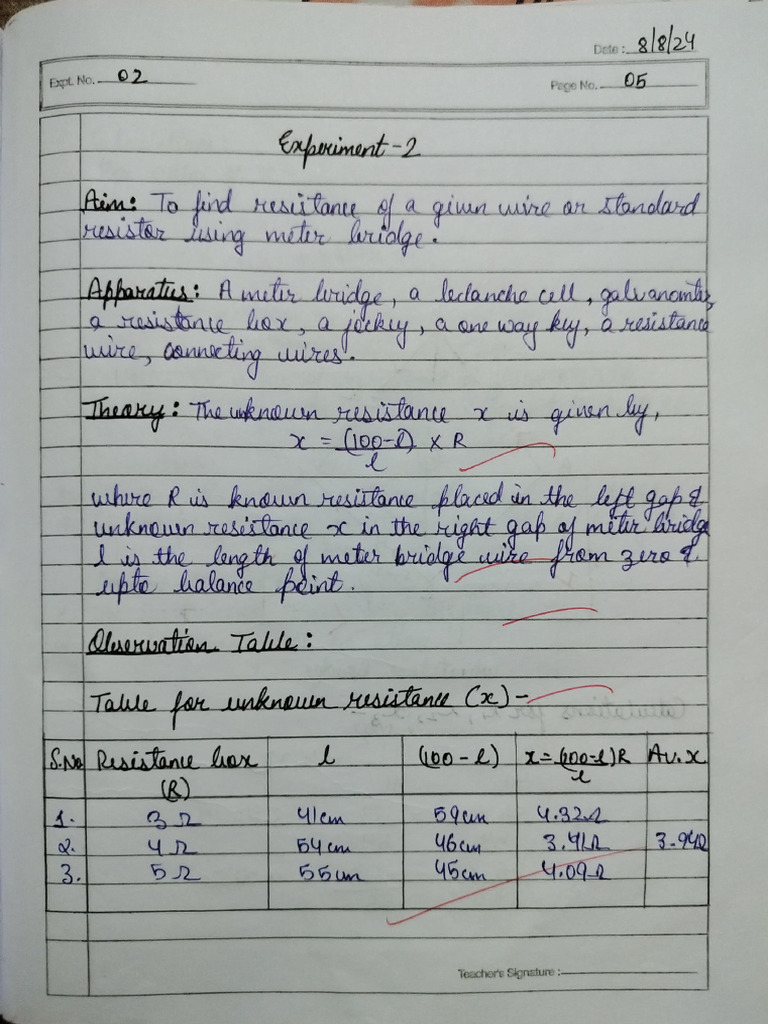 Date: 8/8/24
Expt. No. 02
Page No. 05
Experiment-2
Aim: To find resistance of a given wire or standard
resistor using meter bridge.
Apparatus: A meter bridge, a leclanche cell, galvanometer,
a resistance box, a jockey, a one way key, a resistance
wire, connecting wires.
Theory: The unknown resistance x is given by,
x = (100-l) × R
l
where R is known resistance placed in the left gap &
unknown resistance x in the right gap of meter bridge
l is the length of meter bridge wire from zero &
upto balance point.
Observation Table:
Table for unknown resistance (x) -
S.No Resistance box (R) l (100 - l) x = (100-l)R / l Av. x
1. 3Ω 41cm 59cm 4.32Ω
2. 4Ω 54cm 46cm 3.41Ω 3.94Ω
3. 5Ω 55cm 45cm 4.09Ω
Teacher's Signature :